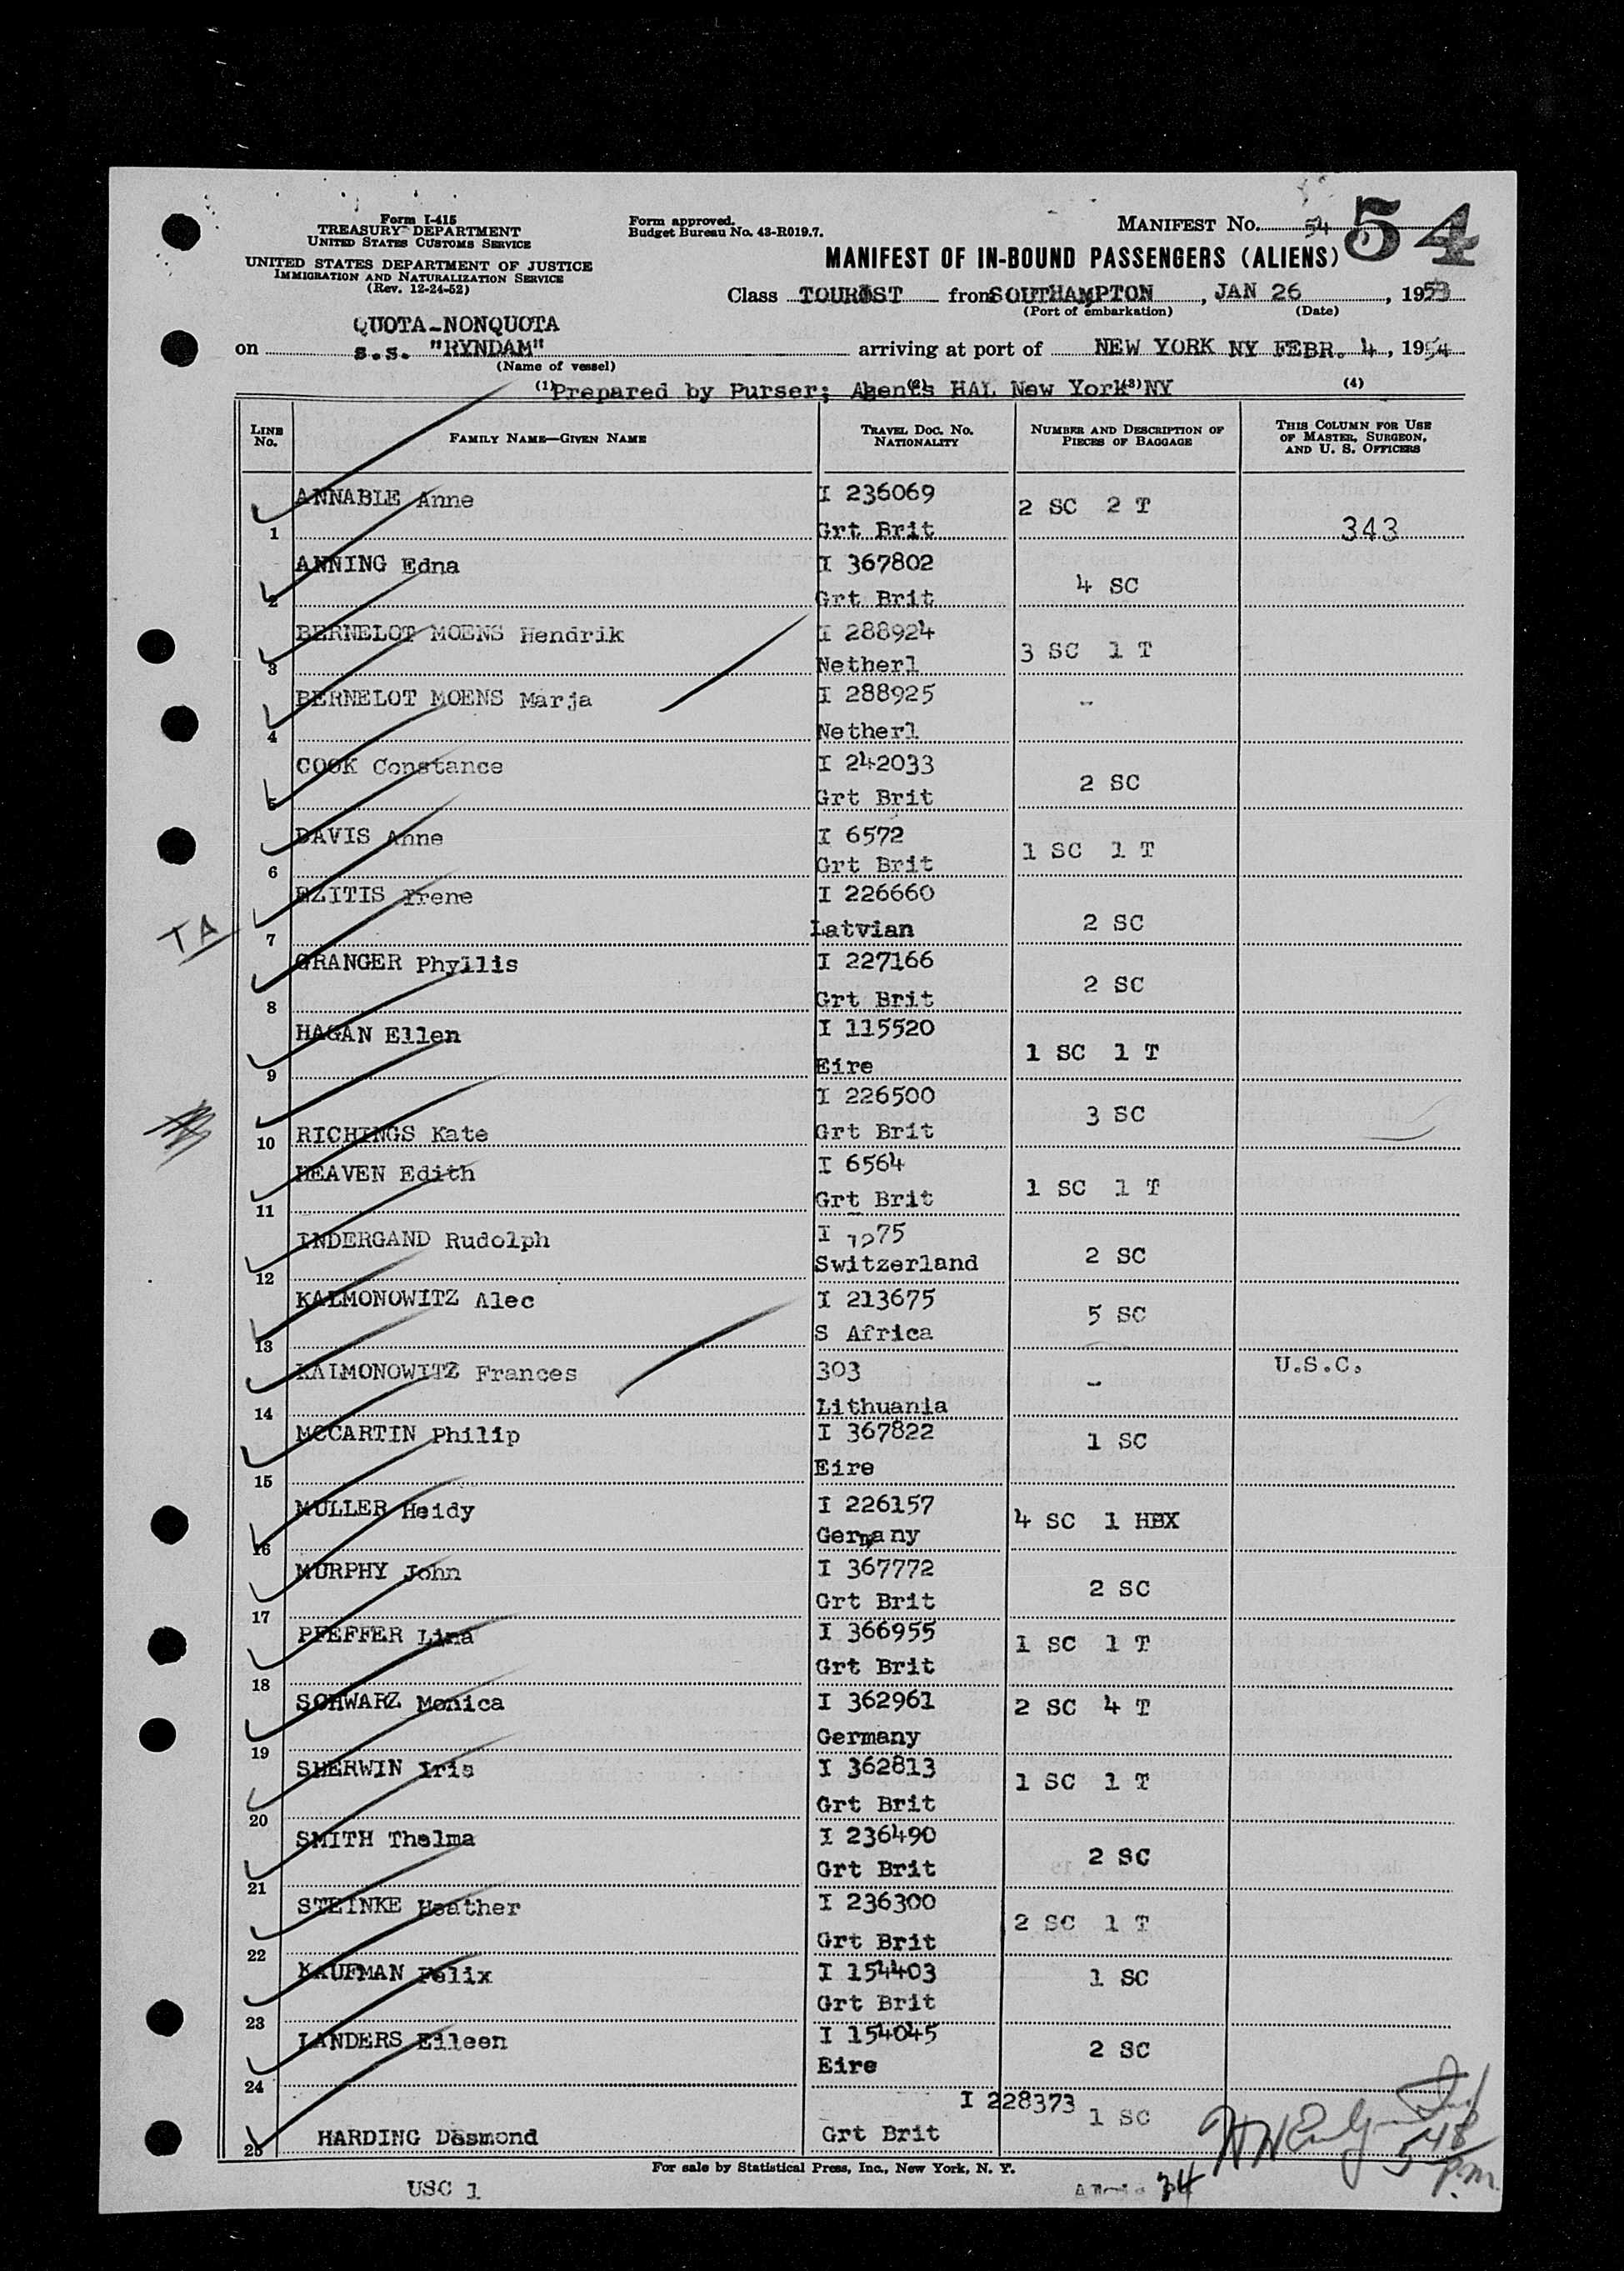 Form I-415
TREASURY DEPARTMENT
UNITED STATES CUSTOMS SERVICE
UNITED STATES DEPARTMENT OF JUSTICE
IMMIGRATION AND NATURALIZATION SERVICE
(Rev. 12-24-52)
Form approved.
Budget Bureau No. 43-R019.7.
MANIFEST No. 54 54
MANIFEST OF IN-BOUND PASSENGERS (ALIENS)
Class TOURIST from SOUTHAMPTON, JAN 26, 1953
(Port of embarkation) (Date)
QUOTA-NONQUOTA
on s.s. "RYNDAM" arriving at port of NEW YORK NY FEBR. 4, 1954
(Name of vessel)
(1) Prepared by Purser; Agents (2) HAL New York (3) NY (4)
LINE No. FAMILY NAME—GIVEN NAME TRAVEL DOC. NO. NATIONALITY NUMBER AND DESCRIPTION OF PIECES OF BAGGAGE THIS COLUMN FOR USE OF MASTER, SURGEON, AND U. S. OFFICERS
1 ANNABLE Anne I 236069 Grt Brit 2 SC 2 T 343
2 ANNING Edna I 367802 Grt Brit 4 SC
3 BERNELOT MOENS Hendrik I 288924 Netherl 3 SC 1 T
4 BERNELOT MOENS Marja I 288925 Netherl -
5 COOK Constance I 242033 Grt Brit 2 SC
6 DAVIS Anne I 6572 Grt Brit 1 SC 1 T
TA
7 EZITIS Irene I 226660 Latvian 2 SC
8 GRANGER Phyllis I 227166 Grt Brit 2 SC
9 HAGAN Ellen I 115520 Eire 1 SC 1 T
10 RICHINGS Kate I 226500 Grt Brit 3 SC
11 HEAVEN Edith I 6564 Grt Brit 1 SC 1 T
12 INDERGAND Rudolph I Switzerland 2 SC
13 KALMONOWITZ Alec I 213675 S Africa 5 SC
14 KALMONOWITZ Frances 303 Lithuania - U.S.C.
15 MCCARTIN Philip I 367822 Eire 1 SC
16 MULLER Heidy I 226157 Germany 4 SC 1 HBX
17 MURPHY John I 367772 Grt Brit 2 SC
18 PFEFFER Lina I 366955 Grt Brit 1 SC 1 T
19 SCHWARZ Monica I 362961 Germany 2 SC 4 T
20 SHERWIN Iris I 362813 Grt Brit 1 SC 1 T
21 SMITH Thelma I 236490 Grt Brit 2 SC
22 STEINKE Heather I 236300 Grt Brit 2 SC 1 T
23 KAUFMAN Felix I 154403 Grt Brit 1 SC
24 LANDERS Eileen I 154045 Eire 2 SC
25 HARDING Desmond I 228373 Grt Brit 1 SC
For sale by Statistical Press, Inc., New York, N. Y.
USC 1